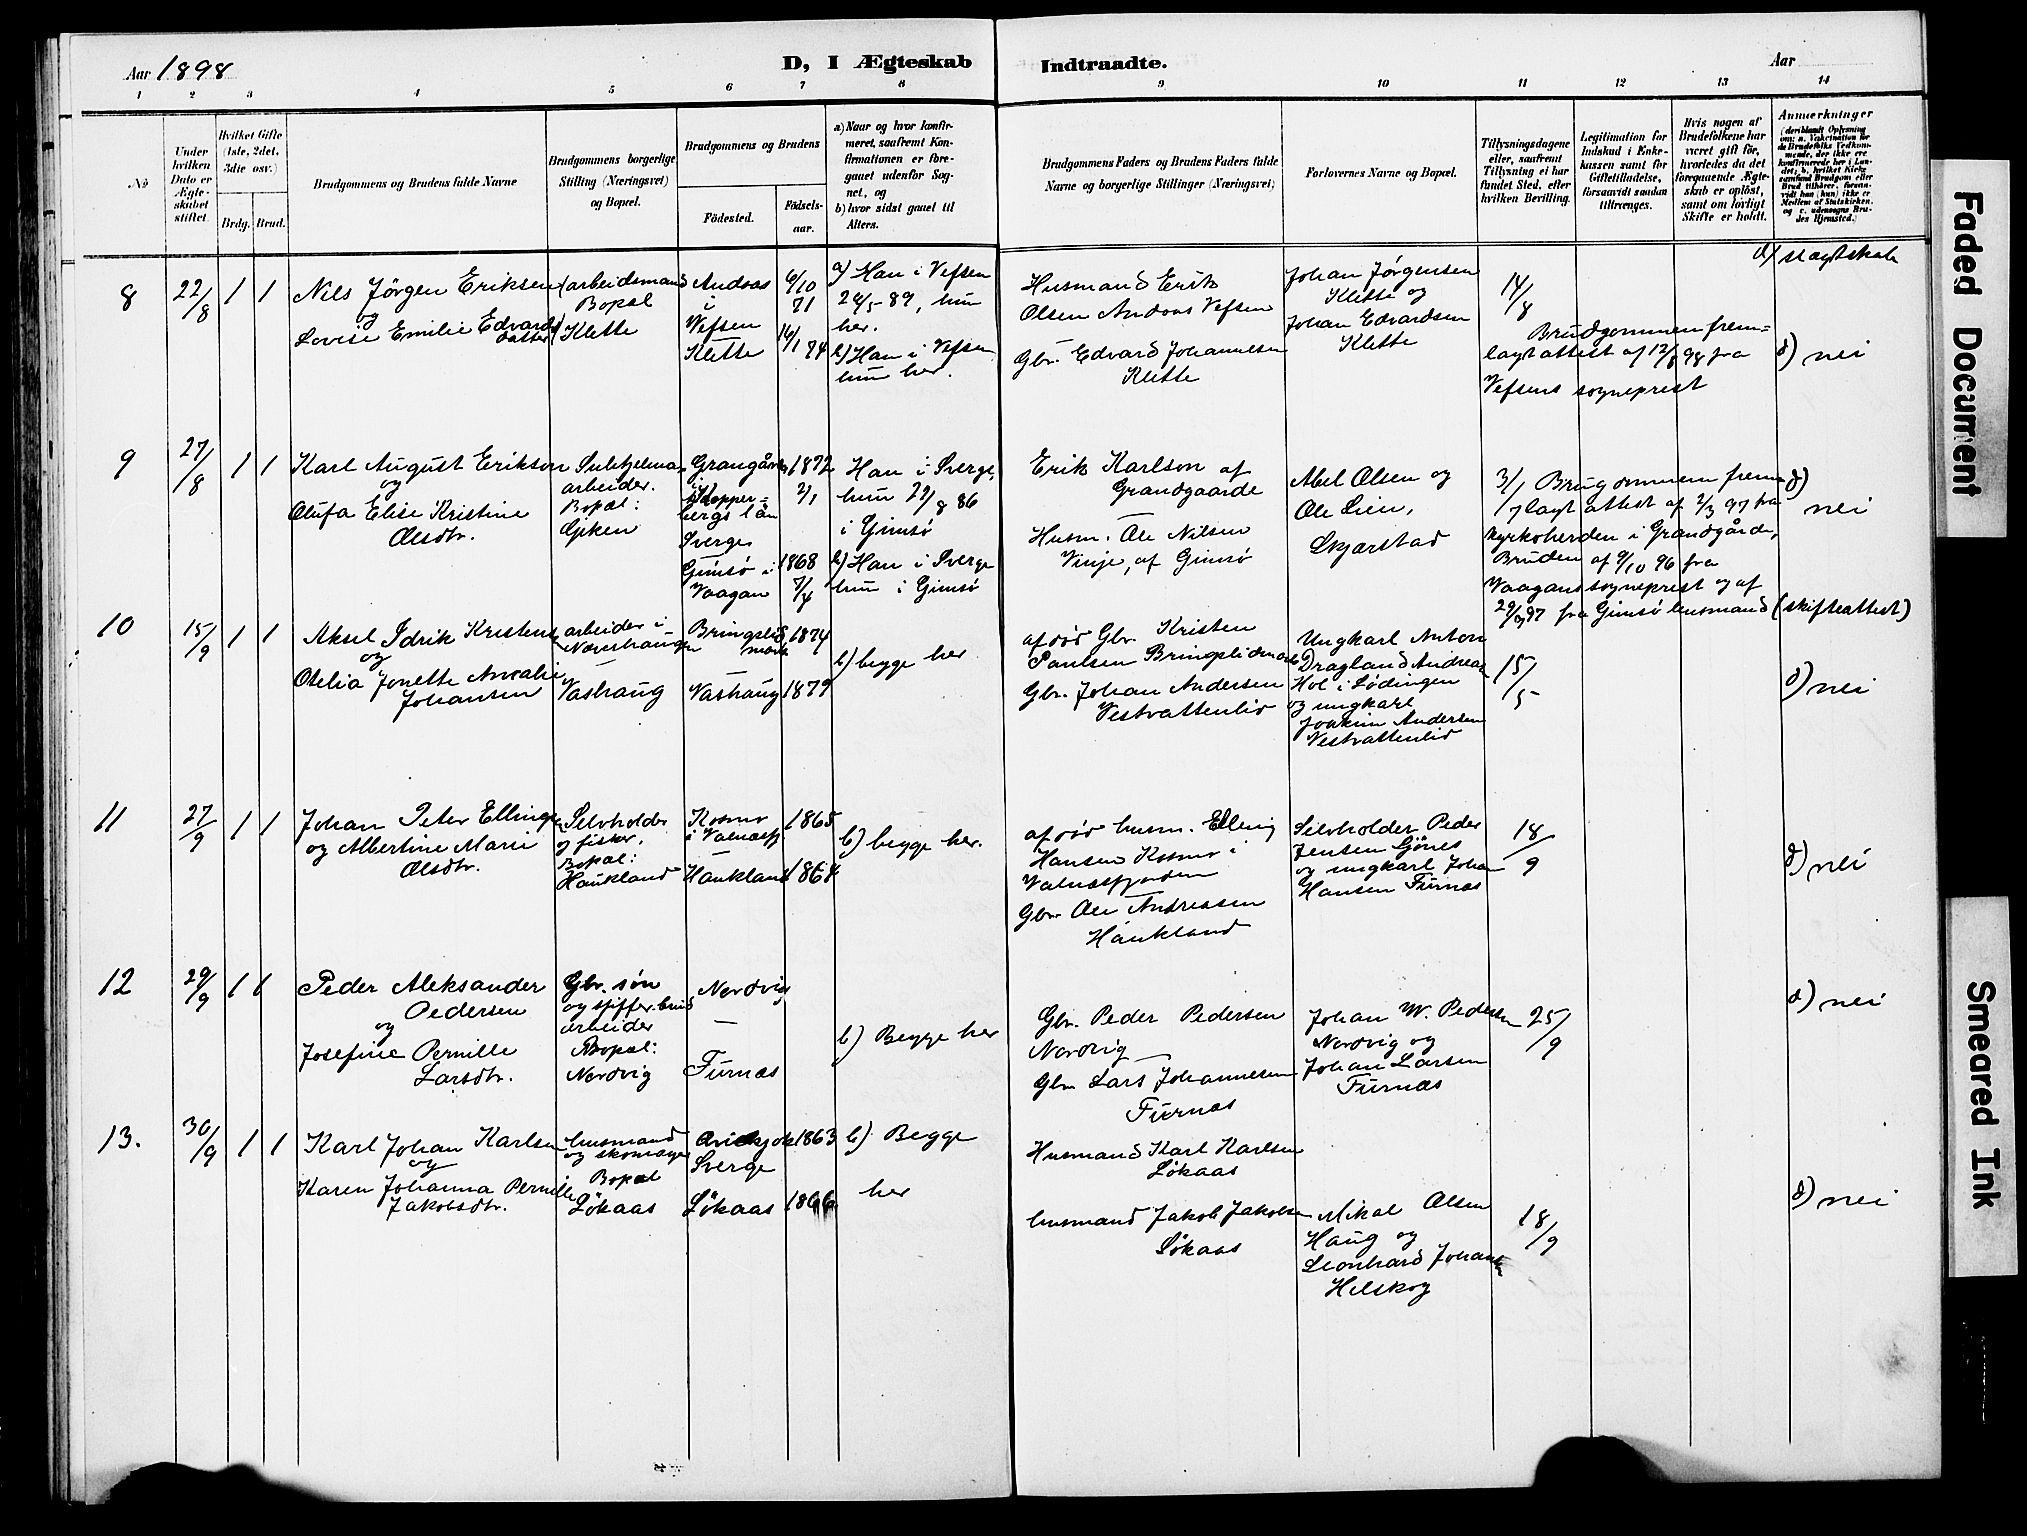 Aar 1898
D, I Ægteskab
Indtraadte.
Aar
1 2 3 4 5 6 7 8 9 10 11 12 13 14
No
Under hvilken Dato er Ægteskabet stiftet.
Hvilket Gifte (1ste, 2det, 3die osv.)
Brdg. Brud.
Brudgommens og Brudens fulde Navne
Brudgommens borgerlige Stilling (Næringsvei) og Bopæl.
Brudgommens og Brudens
Födested.
Födselsaar.
a) Naar og hvor konfirmeret, saafremt Konfirmationen er foregaaet udenfor Sognet, og
b) hvor sidst gaaet til Alters.
Brudgommens Faders og Brudens Faders fulde Navne og borgerlige Stillinger (Næringsvei)
Forlovernes Navne og Bopæl.
Tillysningsdagene eller, saafremt Tillysning ei har fundet Sted, efter hvilken Bevilling.
Legitimation for Indskud i Enkekassen samt for Giftetilladelse, forsaavidt saadan tiltrænges.
Hvis nogen af Brudefolkene har været gift för, hvorledes da det foregaaende Ægteskab er oplöst, samt om lovligt Skifte er holdt.
Anmærkninger
d) slægtskab
8
22/8
1 1
Nils Jörgen Eriksen
og
Lovise Emilie Edvards
datter
arbeidsmand
Bopæl
Klette
Andaas
i
Vefsen
Klette
6/10
71
16/1 74
a) Han i Vefsen
24/5 - 89, hun
her.
b) Han i Vefsen
hun her.
Husmand Erik
Olsen Andaas Vefsen
Gbr. Edvard Johannesen
Klette
Johan Jørgensen
Klette og
Johan Edvardsen
Klette
14/8
Brudgommen frem=
lagt attest af 12/8 98 fra
Vefsens sogneprest
d) nei
9
27/8
1 1
Karl August Erikson
og
Olufa Elise Kristine
Olsdtr.
Sulitjelma
arbeider.
Bopæl:
Gjken
Grangårde
i
Kopper=
bergs län
Sverge
Gimsø i
Vaagan
1872
2/1
1868
7/4
Han i Sverge,
hun 29/8 86
i Gimsö
b) Han i Sverge
hun i Gimsö
Erik Karlson af
Grandgaarde
Husm. Ole Nilsen
Vinje, af Gimsø
Abel Olsen og
Ole Lien,
Skjærstad
3/7 Brugommen frem
lagt attest af 2/3 97 fra
kyrkoherden i Grandgårde,
Bruden af 9/10 96 fra
Vaagans sogneprest og af
29/8 97 fra Gimsø lensmand (skifteattest)
d)
nei
10
15/9
1 1
Aksel Idrik Kristens
og
Otelia Jonette Amalie
Johansen
arbeider i
Næverhaugen
Vashaug
Bringslid
mark
Vashaug
1874
1879
b) begge her
afdöd Gbr. Kristen
Paulsen Bringslidmark
Gbr. Johan Andersen
Vestvattenlid
Ungkarl Anton
Dragland Andreas
Hol i Lødingen
og ungkarl
Joakim Andersen
Vestvattenlid
15/5
d) nei
11
27/9
1 1
Johan Peter Ellingsen
og Albertine Marie
Olsdtr.
Selvholder
og fisker.
Bopæl:
Haukland
Kosmo
i Valnæsfj
Haukland
1865
1864
b) begge her.
afdöd husm. Elling
Hansen Kosmo i
Valnæsfjorden
Gbr. Ole Andreasen
Haukland
Selvholder Peder
Jensen Gjönes
og ungkarl Johan
Hansen Furnæs
18/9
d) nei
12
29/9
1 1
Peder Aleksander
Pedersen
og
Josefine Pernille
Larsdtr.
Gbr. søn
og skiffer brud
arbeider
Bopæl:
Nordvig
Nordvig
—
Furnæs
b) Begge her
Gbr. Peder Pedersen
Nordvig
Gbr. Lars Johannesen
Furnæs
Johan W. Pedersen
Nordvig og
Johan Larsen
Furnæs
25/9
d) nei
13.
30/9
1 1
Karl Johan Karlsen
og
Karen Johanna Pernille
Jakobsdtr.
husmand
og skomager
Bopæl
Løkaas
Sverge
Løkaas
1863
1866
b) Begge
her
Husmand Karl Karlsen
Løkaas
husmand Jakob Jakobsen
Løkaas
Mikal Olsen
Haug og
Leonhard Johans
Helskog
18/9
d) nei
Faded Document
Smeared Ink